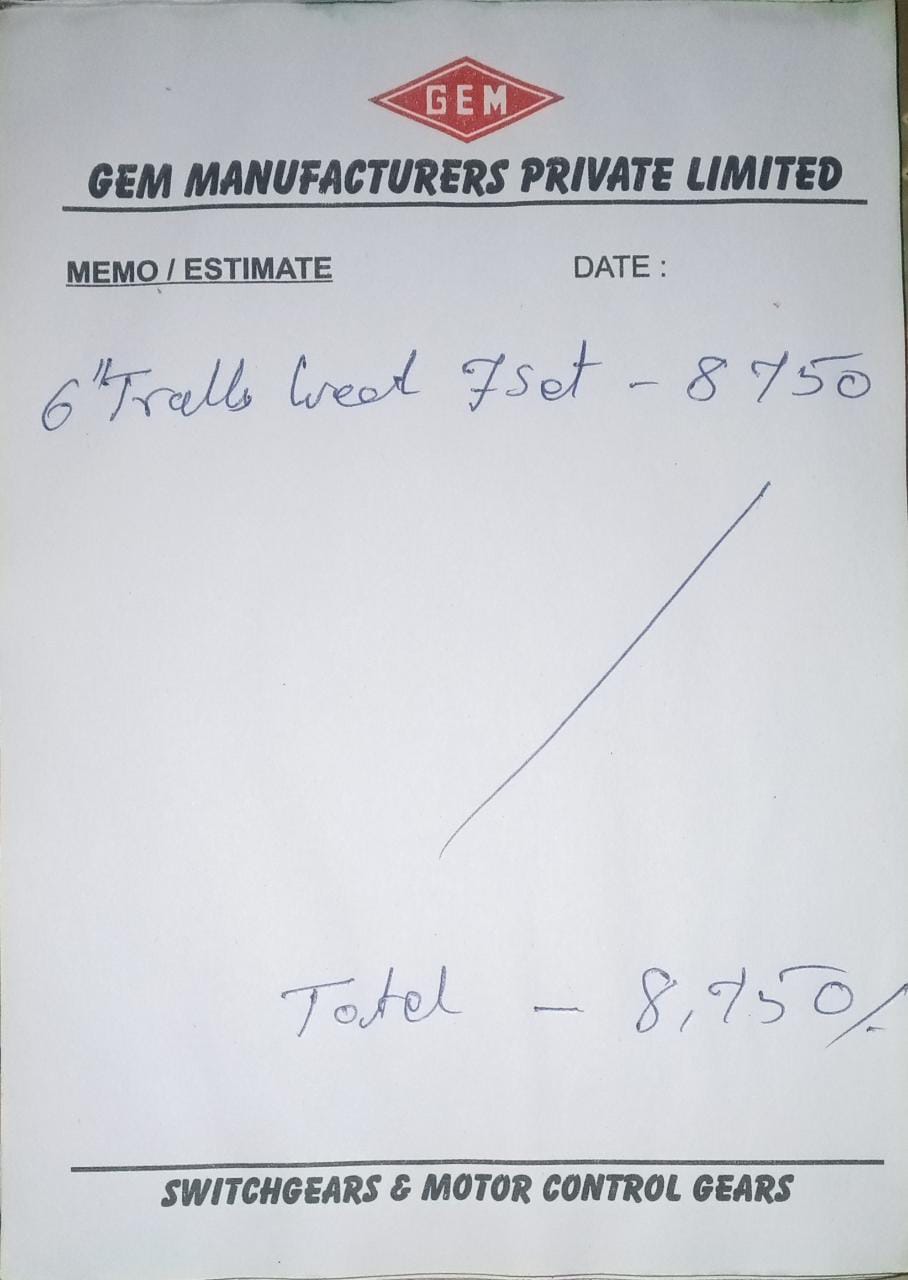 GEM
GEM MANUFACTURERS PRIVATE LIMITED
MEMO / ESTIMATE DATE :
6" 7 Set - 8750
Total - 8,750/-
SWITCHGEARS & MOTOR CONTROL GEARS